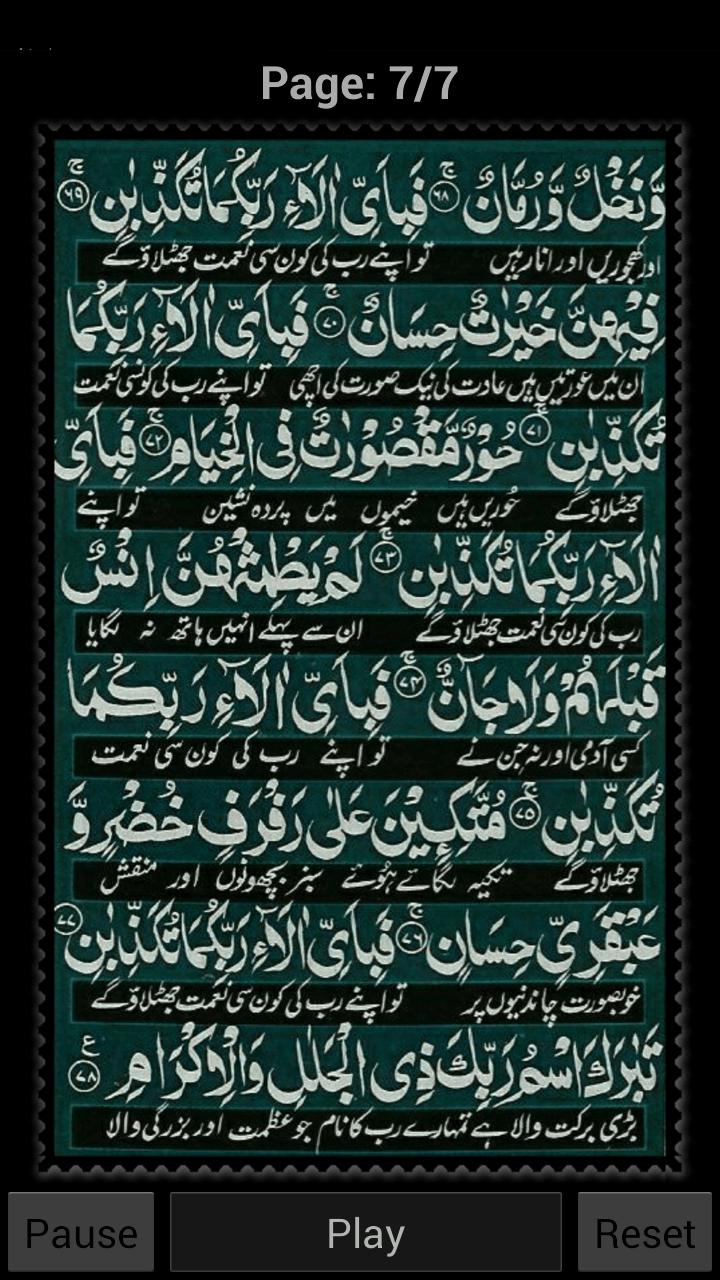 Page: 7/7
وَّنَخْلٌ وَّرُمَّانٌ ۚ﴿۶۸﴾ فَبِاَیِّ اٰلَآءِ رَبِّكُمَا تُكَذِّبٰنِ ۚ﴿۶۹﴾
اور کھجوریں اور انار ہیں تو اپنے رب کی کون سی نعمت جھٹلاؤ گے
فِیْهِنَّ خَیْرٰتٌ حِسَانٌ ۚ﴿۷۰﴾ فَبِاَیِّ اٰلَآءِ رَبِّكُمَا
ان میں عورتیں ہیں عادت کی نیک صورت کی اچھی تو اپنے رب کی کونسی نعمت
تُكَذِّبٰنِ ۚ﴿۷۱﴾ حُوْرٌ مَّقْصُوْرٰتٌ فِی الْخِیَامِ ۚ﴿۷۲﴾ فَبِاَیِّ
جھٹلاؤ گے حُوریں ہیں خیموں میں پردہ نشین تو اپنے
اٰلَآءِ رَبِّكُمَا تُكَذِّبٰنِ ۚ﴿۷۳﴾ لَمْ یَطْمِثْهُنَّ اِنْسٌ
رب کی کون سی نعمت جھٹلاؤ گے ان سے پہلے انہیں ہاتھ نہ لگایا
قَبْلَهُمْ وَلَا جَآنٌّ ۚ﴿۷۴﴾ فَبِاَیِّ اٰلَآءِ رَبِّكُمَا
کسی آدمی اور نہ جن نے تو اپنے رب کی کون سی نعمت
تُكَذِّبٰنِ ۚ﴿۷۵﴾ مُتَّكِـِٕیْنَ عَلٰی رَفْرَفٍ خُضْرٍ وَّ
جھٹلاؤ گے تکیہ لگائے ہوئے سبز بچھونوں اور منقش
عَبْقَرِیٍّ حِسَانٍ ۚ﴿۷۶﴾ فَبِاَیِّ اٰلَآءِ رَبِّكُمَا تُكَذِّبٰنِ ﴿۷۷﴾
خوبصورت چاندنیوں پر تو اپنے رب کی کون سی نعمت جھٹلاؤ گے
تَبٰرَكَ اسْمُ رَبِّكَ ذِی الْجَلٰلِ وَالْاِكْرَامِ ﴿۷۸﴾ ع
بڑی برکت والا ہے تمہارے رب کا نام جو عظمت اور بزرگی والا
Pause Play Reset